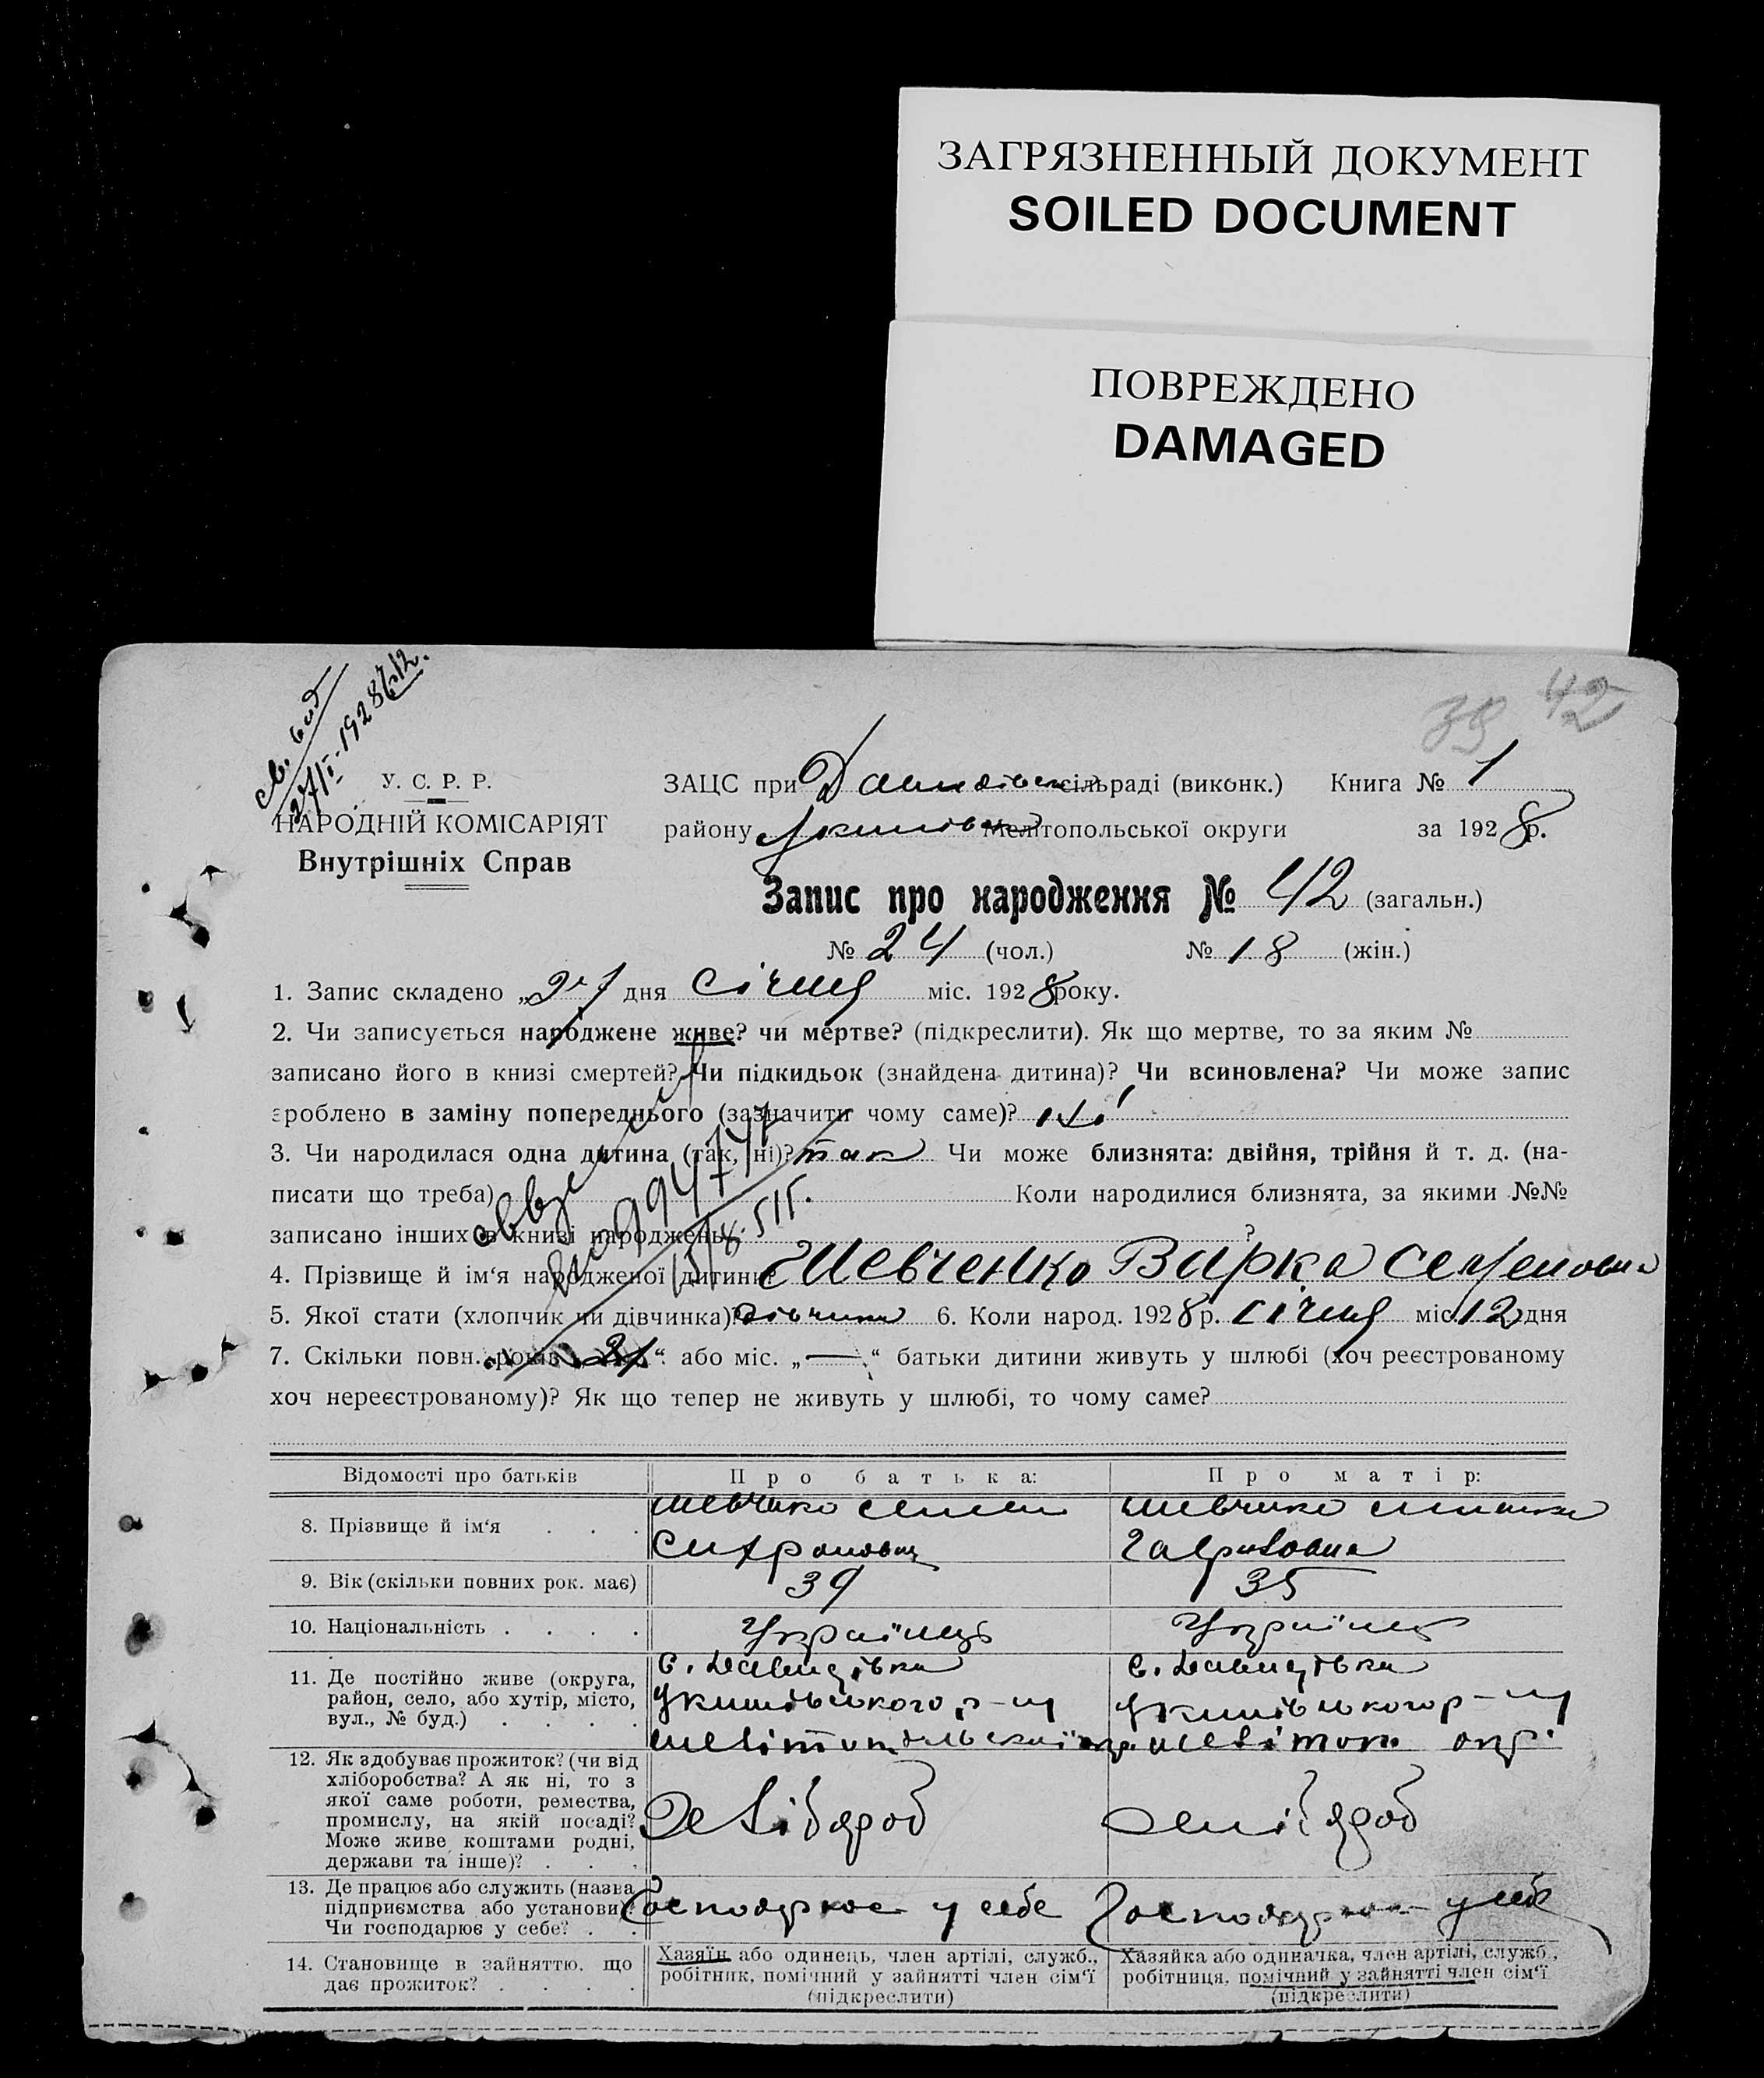 ЗАГРЯЗНЕННЫЙ ДОКУМЕНТ
SOILED DOCUMENT
ПОВРЕЖДЕНО
DAMAGED
39 42
У. С. Р. Р.
НАРОДНІЙ КОМІСАРІЯТ
Внутрішніх Справ
ЗАЦС при сільраді (виконк.) Книга № 1
району Мелітопольської округи за 1928 р.
Запис про народження № 42 (загальн.)
№ 24 (чол.) № 18 (жін.)
1. Запис складено „27 дня січня міс. 1928 року.
2. Чи записується народжене живе? чи мертве? (підкреслити). Як що мертве, то за яким №
записано його в книзі смертей? Чи підкидьок (знайдена дитина)? Чи всиновлена? Чи може запис
зроблено в заміну попереднього (зазначити чому саме)? ні
3. Чи народилася одна дитина (так, ні)? так Чи може близнята: двійня, трійня й т. д. (на-
писати що треба) Коли народилися близнята, за якими №№
записано інших в книзі народжень ?
4. Прізвище й ім‘я народженої дитини? Шевченко Варка Семеновна
5. Якої стати (хлопчик чи дівчинка)? дівчина 6. Коли народ. 1928 р. січня міс. 12 дня
7. Скільки повн. років „ “ або міс. „—“ батьки дитини живуть у шлюбі (хоч реєстрованому
хоч нереєстрованому)? Як що тепер не живуть у шлюбі, то чому саме?
Відомості про батьків Про батька: Про матір:
8. Прізвище й ім‘я . . .
9. Вік (скільки повних рок. має) 39 35
10. Національність . . . . Українць Українц
11. Де постійно живе (округа, с. Давидівка с. Давидівка
район, село, або хутір, місто, Якимівського р-ну Якимівського р-ну
вул., № буд.) . . . . Мелітопільської окр. Мелітоп. окр.
12. Як здобуває прожиток? (чи від
хліборобства? А як ні, то з
якої саме роботи, ремества,
промислу, на якій посаді?
Може живе коштами родні,
держави та інше)? . . .
13. Де працює або служить (назва
підприємства або установи)? Господарює у себе Господарює у себе
Чи господарює у себе? . .
14. Становище в зайняттю, що Хазяїн або одинець, член артілі, служб., Хазяйка або одиначка, член артілі, служб.,
дає прожиток? . . . . робітник, помічний у зайнятті член сім‘ї робітниця, помічний у зайнятті член сім‘ї
(підкреслити) (підкреслити)